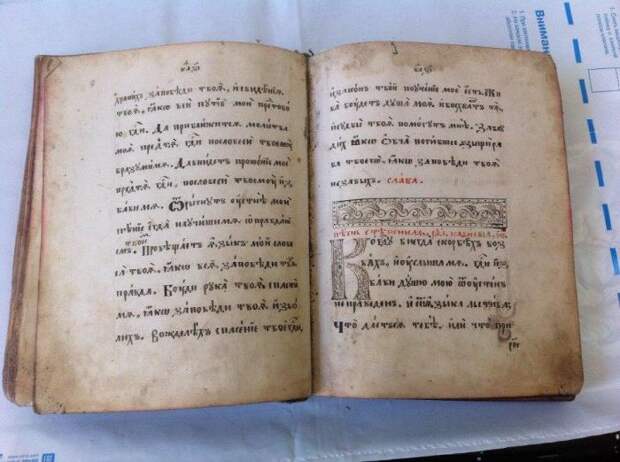 хранихъ заповѣди твоѧ, исвидѣнїѧ
твоѧ, ꙗко вси путїе мои предтобо
ю гд҃и. Да приближитсѧ молитва
моѧ предтѧ гд҃и пословеси твоемꙋ
вразумимѧ. Давнидетъ прошенїе мое
предтѧ гд҃и, пословеси твоемꙋ из
бавимѧ. Ѿрыгнутъ устнѣ мои
пѣнїе егда научишимѧ ѡправданї
твоим
емъ. Провѣщаетъ ѧзыкъ мой слове
са твоѧ, ꙗко всѧ заповѣди тв
правда. Буди рука твоѧ спасти
мѧ, ꙗко заповѣди твоѧ изво
лихъ. Вожделѣхъ спасенїе твое гд҃и,
изаконъ твой поученїе мое есть. Жи
ва будетъ душа моѧ ивосхвалитъ тѧ,
исудбы твоѧ помогутъ мнѣ. Заблу
дихъ ꙗко ѡвча погибшее, взыщи ра
ба твоего, ꙗко заповѣди твоѧ
незабыхъ. слава.
Пѣснь степеннаѧ
Ко гд҃у внегда скорбѣхъ воз
вахъ, иуслышамѧ. гд҃и из
бави душу мою ѿустенъ
неправеденъ, и ѿѧзыка льстива:
Что дастьсѧ тебѣ, или что при
Вниман